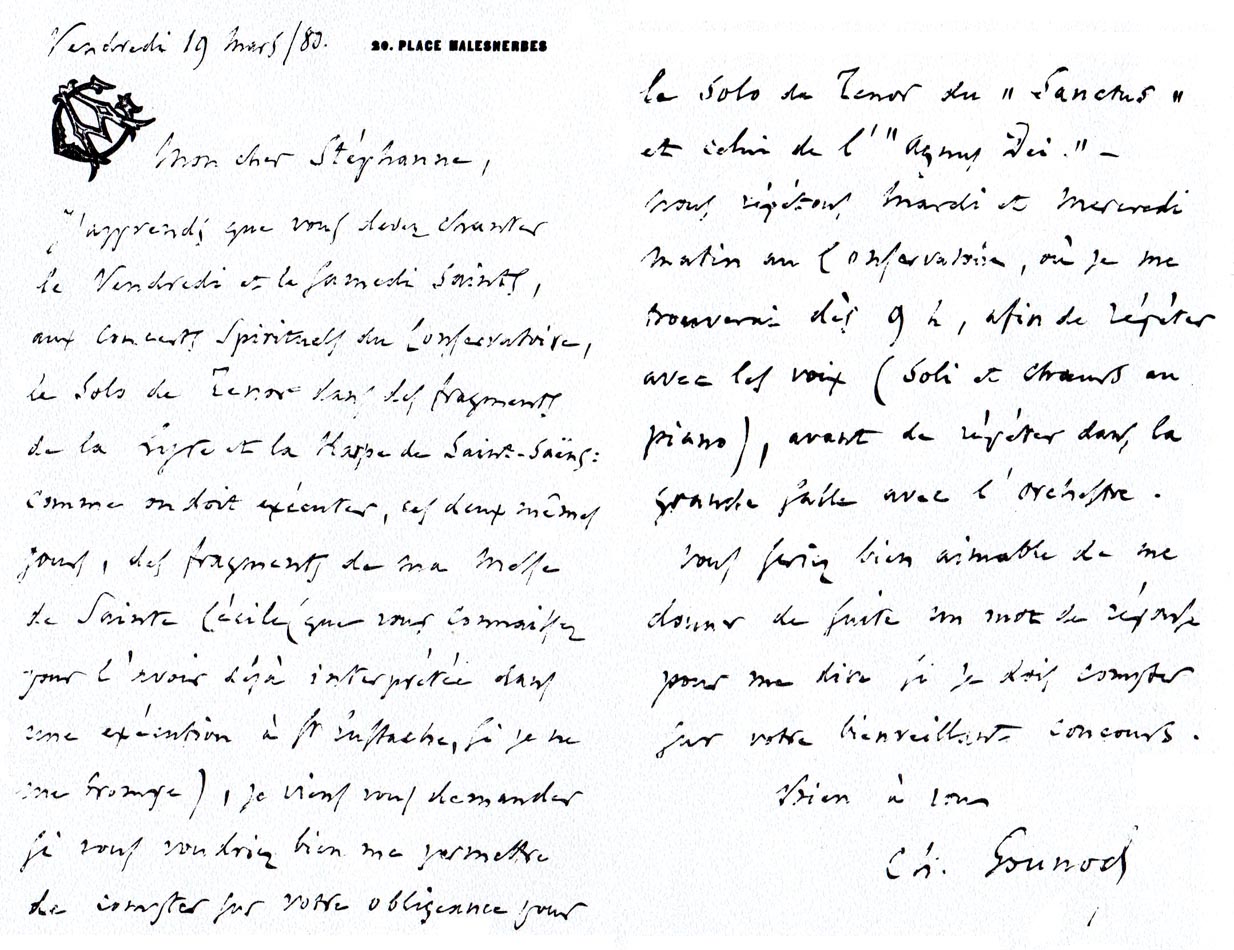 Vendredi 19 Mars/80.
20. PLACE MALESHERBES
Mon cher Stéphanne,
J'apprends que vous devez chanter
le Vendredi et le Samedi Saints,
aux Concerts Spirituels du Conservatoire,
le Solo de Tenor dans des fragments
de la Lyre et la Harpe de Saint-Saëns:
comme on doit exécuter, ces deux mêmes
jours, des fragments de ma Messe
de Sainte Cécile (que vous connaissez
pour l'avoir déjà interprétée dans
une exécution à St Eustache, si je ne
me trompe), je viens vous demander
si vous voudriez bien me permettre
de compter sur votre obligeance pour
le Solo de Tenor du "Sanctus"
et celui de l'"Agnus Dei." -
Nous répétons Mardi et Mercredi
matin au Conservatoire, où je me
trouverai dès 9 h, afin de répéter
avec les voix (Soli et chœurs au
piano), avant de répéter dans la
grande salle avec l'orchestre.
Vous seriez bien aimable de me
donner de suite un mot de réponse
pour me dire si je dois compter
sur votre bienveillant concours.
Bien à vous
Ch. Gounod